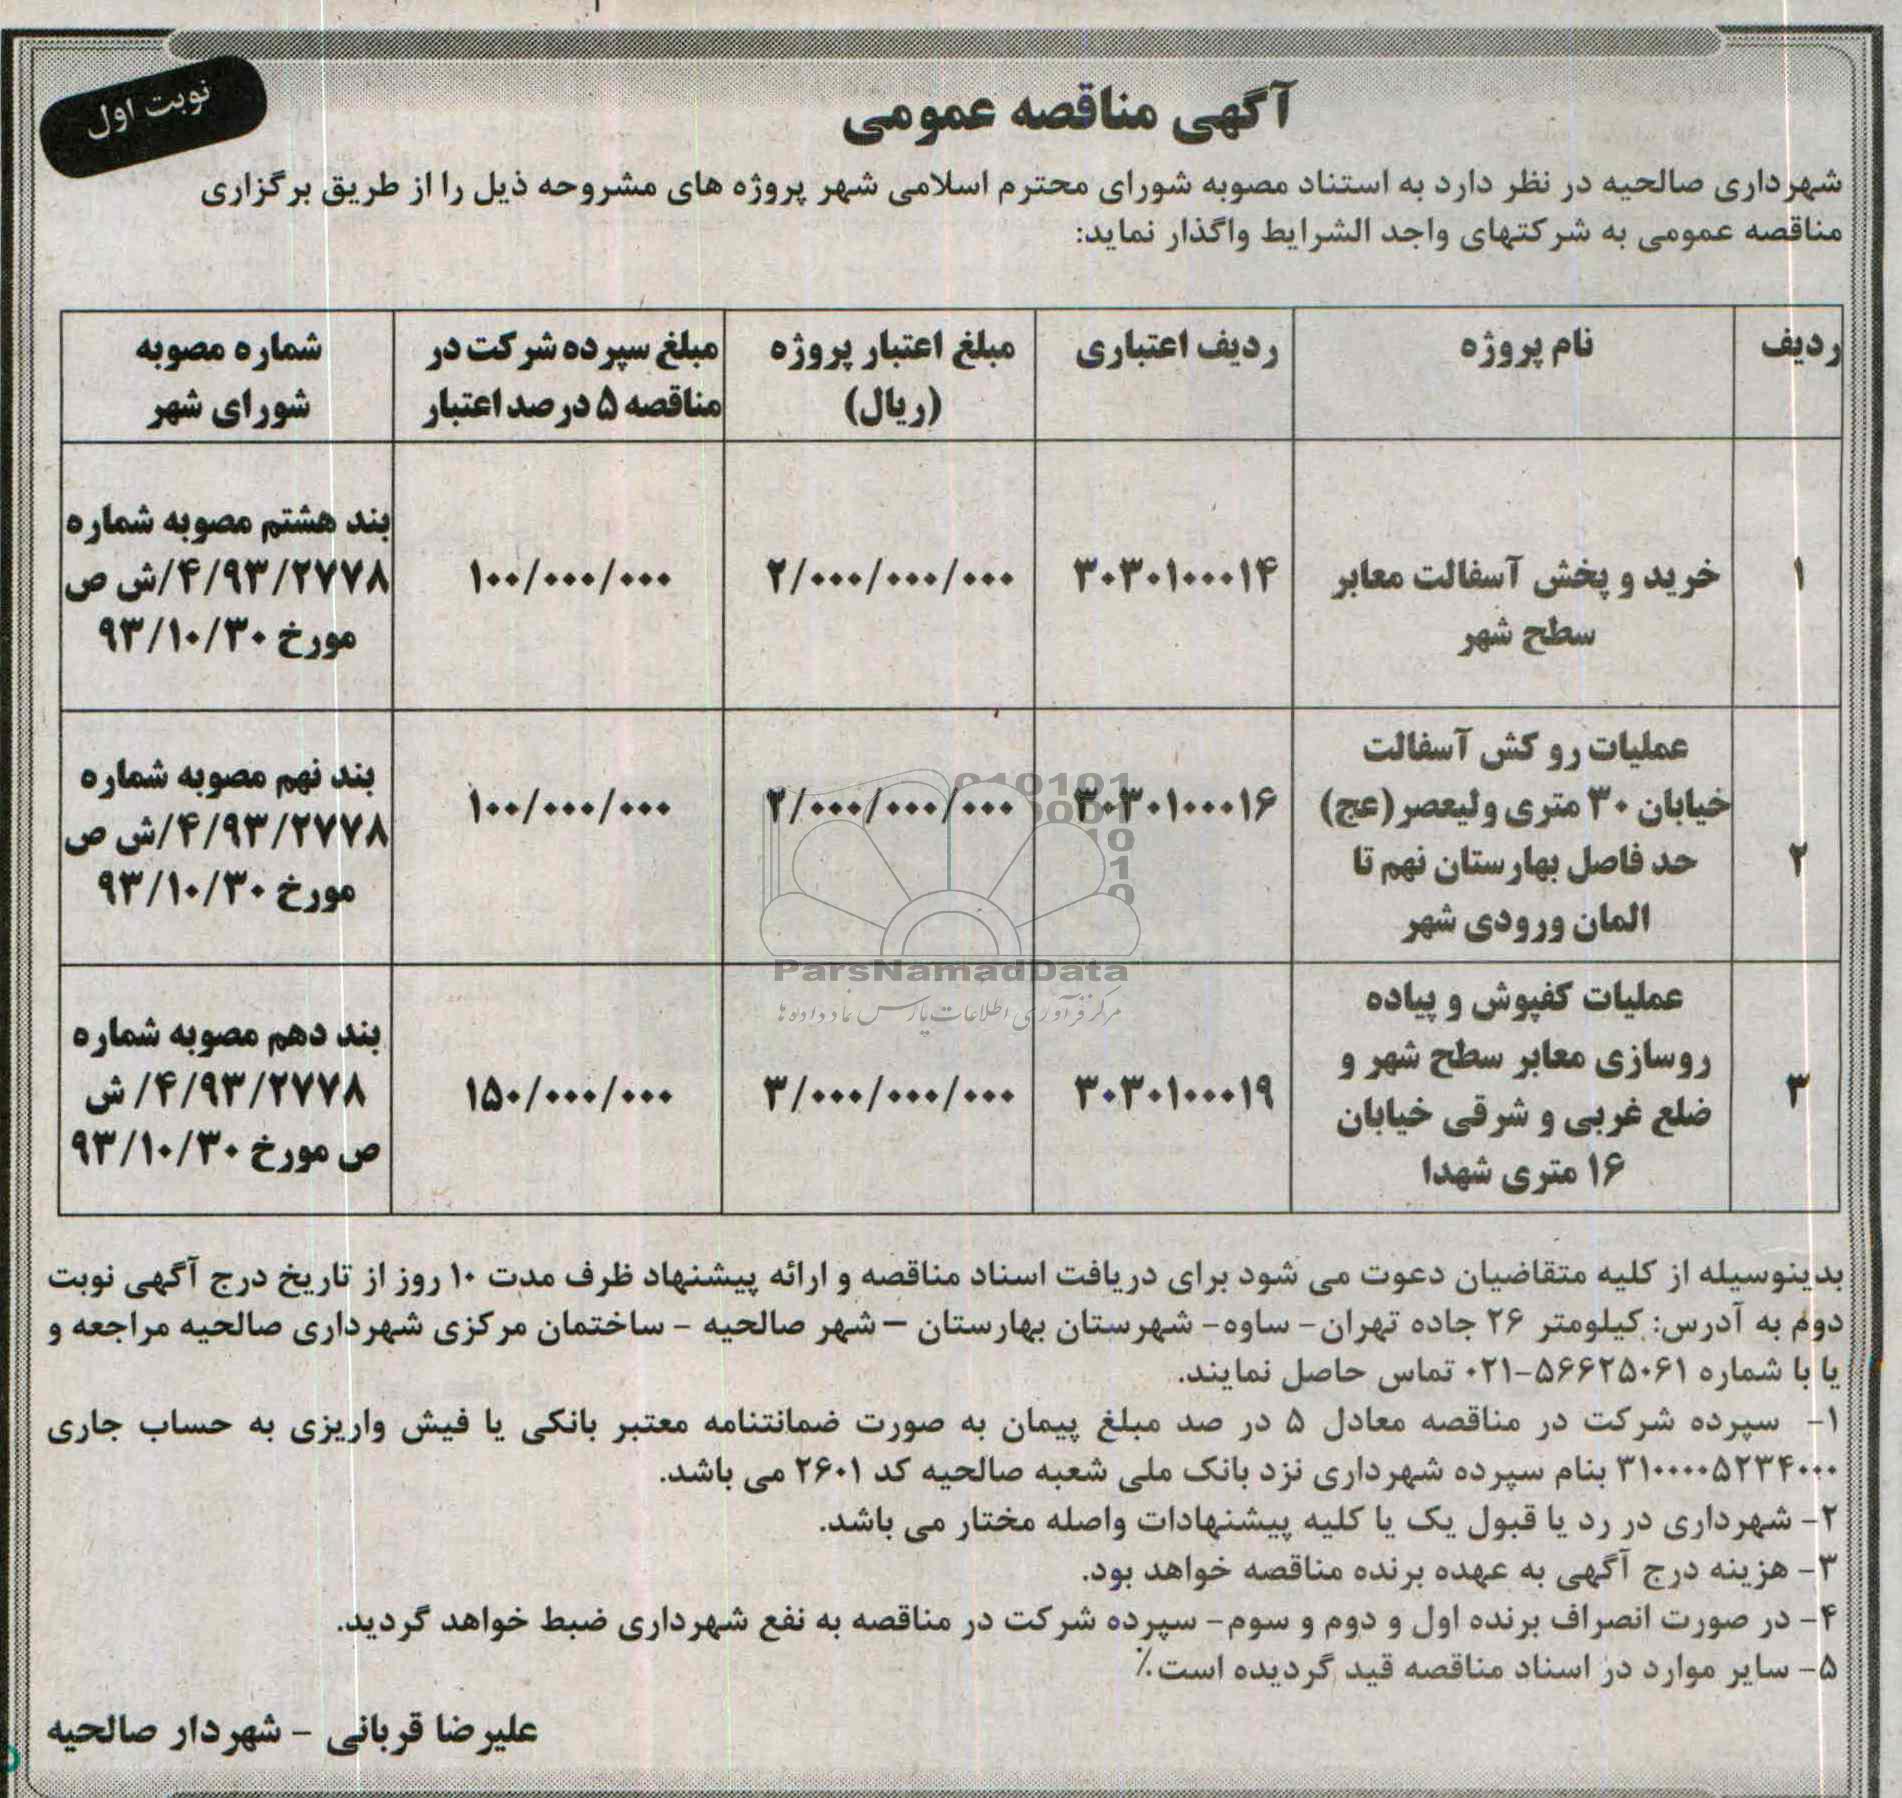 نوبت اول
آگهی مناقصه عمومی
شهرداری صالحیه در نظر دارد به استناد مصوبه شورای محترم اسلامی شهر پروژه های مشروحه ذیل را از طریق برگزاری
مناقصه عمومی به شرکتهای واجد الشرایط واگذار نماید:
ردیف
نام پروژه
ردیف اعتباری
مبلغ اعتبار پروژه
(ریال)
مبلغ سپرده شرکت در
مناقصه ۵ درصد اعتبار
شماره مصوبه
شورای شهر
۱
خرید و پخش آسفالت معابر
سطح شهر
۳۰۳۰۱۰۰۰۱۴
۲/۰۰۰/۰۰۰/۰۰۰
۱۰۰/۰۰۰/۰۰۰
بند هشتم مصوبه شماره
۴/۹۳/۲۷۷۸/ش ص
مورخ ۹۳/۱۰/۳۰
۲
عملیات رو کش آسفالت
خیابان ۳۰ متری ولیعصر(عج)
حد فاصل بهارستان نهم تا
المان ورودی شهر
۳۰۳۰۱۰۰۰۱۶
۲/۰۰۰/۰۰۰/۰۰۰
۱۰۰/۰۰۰/۰۰۰
بند نهم مصوبه شماره
۴/۹۳/۲۷۷۸/ش ص
مورخ ۹۳/۱۰/۳۰
۳
عملیات کفپوش و پیاده
روسازی معابر سطح شهر و
ضلع غربی و شرقی خیابان
۱۶ متری شهدا
۳۰۳۰۱۰۰۰۱۹
۳/۰۰۰/۰۰۰/۰۰۰
۱۵۰/۰۰۰/۰۰۰
بند دهم مصوبه شماره
۴/۹۳/۲۷۷۸/ ش
ص مورخ ۹۳/۱۰/۳۰
ParsNamadData
مرکز فرآوری اطلاعات پارس نماد داده ها
بدینوسیله از کلیه متقاضیان دعوت می شود برای دریافت اسناد مناقصه و ارائه پیشنهاد ظرف مدت ۱۰ روز از تاریخ درج آگهی نوبت
دوم به آدرس: کیلومتر ۲۶ جاده تهران- ساوه- شهرستان بهارستان –شهر صالحیه - ساختمان مرکزی شهرداری صالحیه مراجعه و
یا با شماره ۵۶۶۲۵۰۶۱-۰۲۱ تماس حاصل نمایند.
۱- سپرده شرکت در مناقصه معادل ۵ در صد مبلغ پیمان به صورت ضمانتنامه معتبر بانکی یا فیش واریزی به حساب جاری
۳۱۰۰۰۰۵۲۳۴۰۰۰ بنام سپرده شهرداری نزد بانک ملی شعبه صالحیه کد ۲۶۰۱ می باشد.
۲- شهرداری در رد یا قبول یک یا کلیه پیشنهادات واصله مختار می باشد.
۳- هزینه درج آگهی به عهده برنده مناقصه خواهد بود.
۴- در صورت انصراف برنده اول و دوم و سوم- سپرده شرکت در مناقصه به نفع شهرداری ضبط خواهد گردید.
۵- سایر موارد در اسناد مناقصه قید گردیده است٪
علیرضا قربانی - شهردار صالحیه